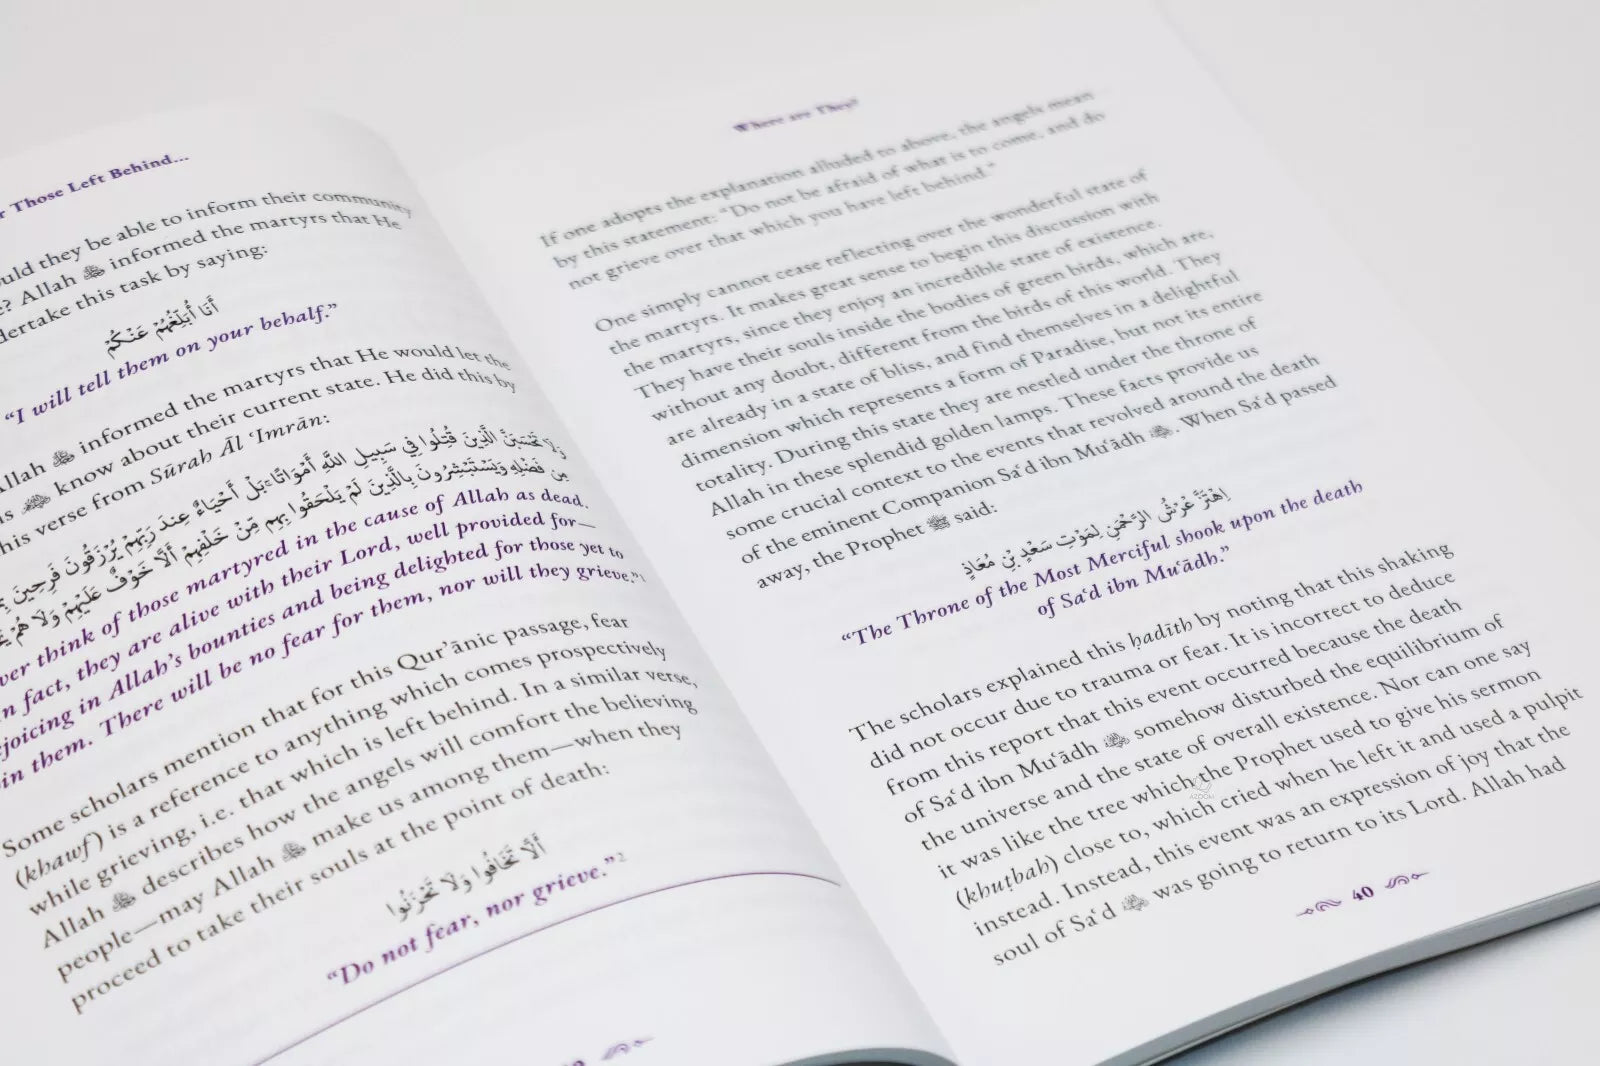 r Those Left Behind...
uld they be able to inform their community
e? Allah ﷻ informed the martyrs that He
dertake this task by saying:
أَنَا أُبَلِّغُهُمْ عَنْكُمْ
“I will tell them on your behalf.”
Allah ﷻ informed the martyrs that He would let the
is ﷻ know about their current state. He did this by
his verse from Sūrah Āl ʿImrān:
وَلَا تَحْسَبَنَّ الَّذِينَ قُتِلُوا فِي سَبِيلِ اللَّهِ أَمْوَاتًا ۚ بَلْ أَحْيَاءٌ عِندَ رَبِّهِمْ يُرْزَقُونَ فَرِحِينَ
مِن فَضْلِهِ وَيَسْتَبْشِرُونَ بِالَّذِينَ لَمْ يَلْحَقُوا بِهِم مِّنْ خَلْفِهِمْ أَلَّا خَوْفٌ عَلَيْهِمْ وَلَا هُمْ
ver think of those martyred in the cause of Allah as dead.
n fact, they are alive with their Lord, well provided for—
ejoicing in Allah’s bounties and being delighted for those yet to
in them. There will be no fear for them, nor will they grieve.”1
Some scholars mention that for this Qurʾānic passage, fear
(khawf) is a reference to anything which comes prospectively
while grieving, i.e. that which is left behind. In a similar verse,
Allah ﷻ describes how the angels will comfort the believing
people—may Allah ﷻ make us among them—when they
proceed to take their souls at the point of death:
أَلَّا تَخَافُوا وَلَا تَحْزَنُوا
“Do not fear, nor grieve.”2
Where are They?
If one adopts the explanation alluded to above, the angels mean
by this statement: “Do not be afraid of what is to come, and do
not grieve over that which you have left behind.”
One simply cannot cease reflecting over the wonderful state of
the martyrs. It makes great sense to begin this discussion with
the martyrs, since they enjoy an incredible state of existence.
They have their souls inside the bodies of green birds, which are,
without any doubt, different from the birds of this world. They
are already in a state of bliss, and find themselves in a delightful
dimension which represents a form of Paradise, but not its entire
totality. During this state they are nestled under the throne of
Allah in these splendid golden lamps. These facts provide us
some crucial context to the events that revolved around the death
of the eminent Companion Saʿd ibn Muʿādh. When Saʿd passed
away, the Prophet ﷺ said:
اِهْتَزَّ عَرْشُ الرَّحْمَنِ لِمَوْتِ سَعْدِ بْنِ مُعَاذٍ
“The Throne of the Most Merciful shook upon the death
of Saʿd ibn Muʿādh.”
The scholars explained this ḥadīth by noting that this shaking
did not occur due to trauma or fear. It is incorrect to deduce
from this report that this event occurred because the death
of Saʿd ibn Muʿādh somehow disturbed the equilibrium of
the universe and the state of overall existence. Nor can one say
it was like the tree which the Prophet used to give his sermon
(khuṭbah) close to, which cried when he left it and used a pulpit
instead. Instead, this event was an expression of joy that the
soul of Saʿd was going to return to its Lord. Allah had
40